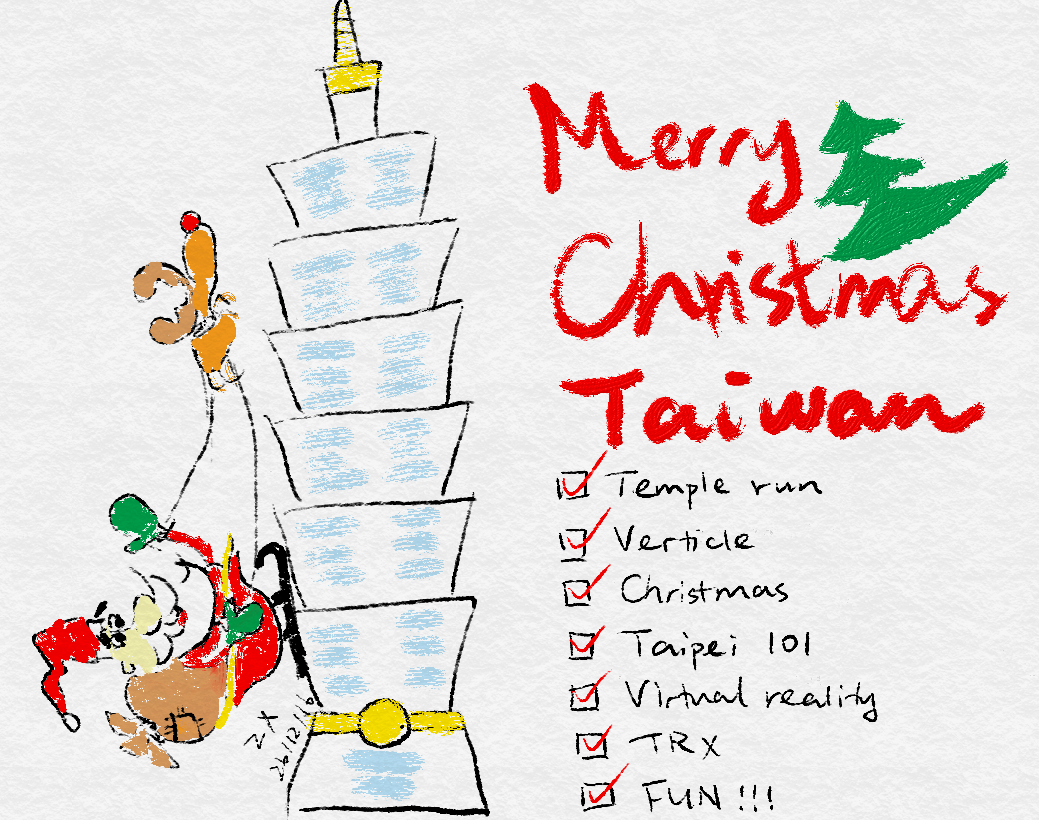 Merry
Christmas
Taiwan
Temple run
Verticle
Christmas
Taipei 101
Virtual reality
TRX
FUN !!!
ZX
26/12/16